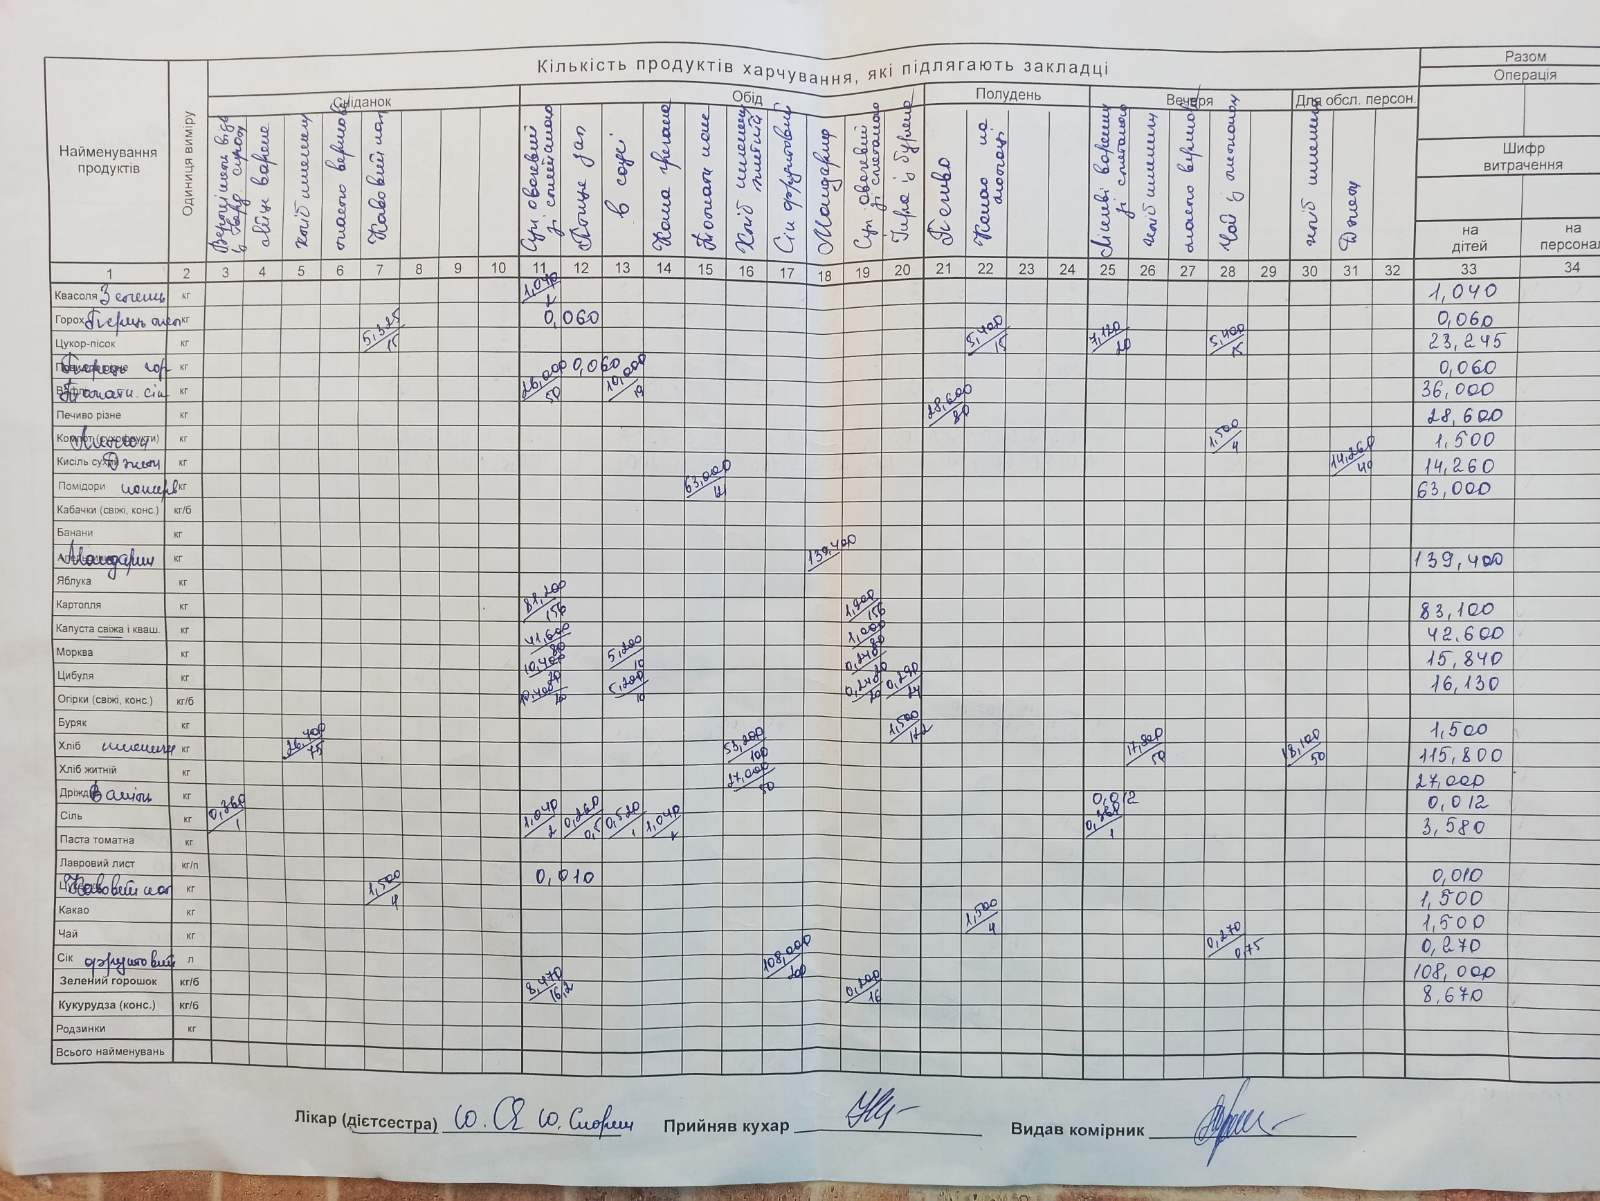 Кількість продуктів харчування, які підлягають закладці
Разом
Операція
Найменування продуктів
Одиниця виміру
Сніданок
Обід
Полудень
Вечеря
Для обсл. персон.
Шифр витрачення
на дітей
на персонал
хліб пшеничн
масло вершкове
Кавовий нап
Суп овочевий зі сметаною
Птиця зап
в соусі
Каша гречана
Томати
Хліб пшеничн житній
Сік фруктовий
Мандарин
Суп овочевий зі сметаною
Печиво
Какао на молоці
хліб пшеничн
масло вершков
Чай з лимоном
хліб пшеничн
Джем
1 2 3 4 5 6 7 8 9 10 11 12 13 14 15 16 17 18 19 20 21 22 23 24 25 26 27 28 29 30 31 32 33 34
Квасоля Зелень кг 1,040/2 1,040
Горох Перець кг 0,060 0,060
Цукор-пісок кг 5,325/15 5,400/15 7,120/20 5,400/15 23,245
Перець гор кг 0,060 0,060
Томатн. сік кг 26,000/50 10,000/19 36,000
Печиво різне кг 28,600/80 28,600
Лимон кг 1,500/4 1,500
Кисіль сухий Джем кг 14,260/40 14,260
Помідори консерв кг 63,000/121 63,000
Кабачки (свіжі, конс.) кг/б
Банани кг
Мандарин кг 139,400 139,400
Яблука кг
Картопля кг 81,200/156 1,900/156 83,100
Капуста свіжа і кваш. кг 41,600/80 1,000/80 42.600
Морква кг 10,400/20 5,200/10 0,240/20 15,840
Цибуля кг 10,400/20 5,200/10 0,240/20 0,290/24 16,130
Огірки (свіжі, конс.) кг/б
Буряк кг 1,500/122 1,500
Хліб пшеничн кг 26,700/75 53,200/100 17,800/50 18,100/50 115,800
Хліб житній кг 27,000/50 27,000
Дріжд Ванілін кг 0,012 0,012
Сіль кг 0,360/1 1,040/2 0,260/0,5 0,520/1 1,040/2 0,360/1 3,580
Паста томатна кг
Лавровий лист кг/п 0,010 0,010
Кавовий нап кг 1,500/4 1,500
Какао кг 1,500/4 1,500
Чай кг 0,270/0,75 0,270
Сік фруктовий л 108,000/200 108,000
Зелений горошок кг/б 8,470/16,2 0,200/16 8,670
Кукурудза (конс.) кг/б
Родзинки кг
Всього найменувань
Лікар (дієтсестра)
Прийняв кухар
Видав комірник